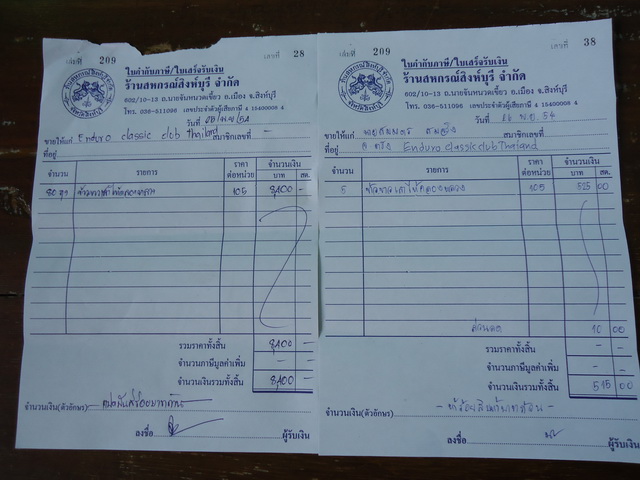 เล่มที่ 209 เลขที่ 28
ใบกำกับภาษี/ใบเสร็จรับเงิน
ร้านสหกรณ์สิงห์บุรี จำกัด
602/10-13 ถ.นายจันทนวดเขี้ยว อ.เมือง จ.สิงห์บุรี
โทร. 036-511096 เลขประจำตัวผู้เสียภาษี 4 15400008 4
วันที่
ขายให้แก่ Enduro classic club Thailand สมาชิกเลขที่ -
ที่อยู่
จำนวน รายการ ราคาต่อหน่วย จำนวนเงิน บาท สต.
80 ถุง 105 8,400 -
รวมราคาทั้งสิ้น 8,400 -
จำนวนภาษีมูลค่าเพิ่ม - -
จำนวนเงินรวมทั้งสิ้น 8,400 -
จำนวนเงิน(ตัวอักษร)
ลงชื่อ ผู้รับเงิน
เล่มที่ 209 เลขที่ 38
ใบกำกับภาษี/ใบเสร็จรับเงิน
ร้านสหกรณ์สิงห์บุรี จำกัด
602/10-13 ถ.นายจันทนวดเขี้ยว อ.เมือง จ.สิงห์บุรี
โทร. 036-511096 เลขประจำตัวผู้เสียภาษี 4 15400008 4
วันที่ 26 พ.ย. 54
ขายให้แก่ สมาชิกเลขที่
ที่อยู่ Enduro classic club Thailand
จำนวน รายการ ราคาต่อหน่วย จำนวนเงิน บาท สต.
5 105 525 00
ส่วนลด 10 00
รวมราคาทั้งสิ้น - -
จำนวนภาษีมูลค่าเพิ่ม - -
จำนวนเงินรวมทั้งสิ้น 515 00
จำนวนเงิน(ตัวอักษร) - ห้าร้อยสิบห้าบาทถ้วน -
ลงชื่อ ผู้รับเงิน